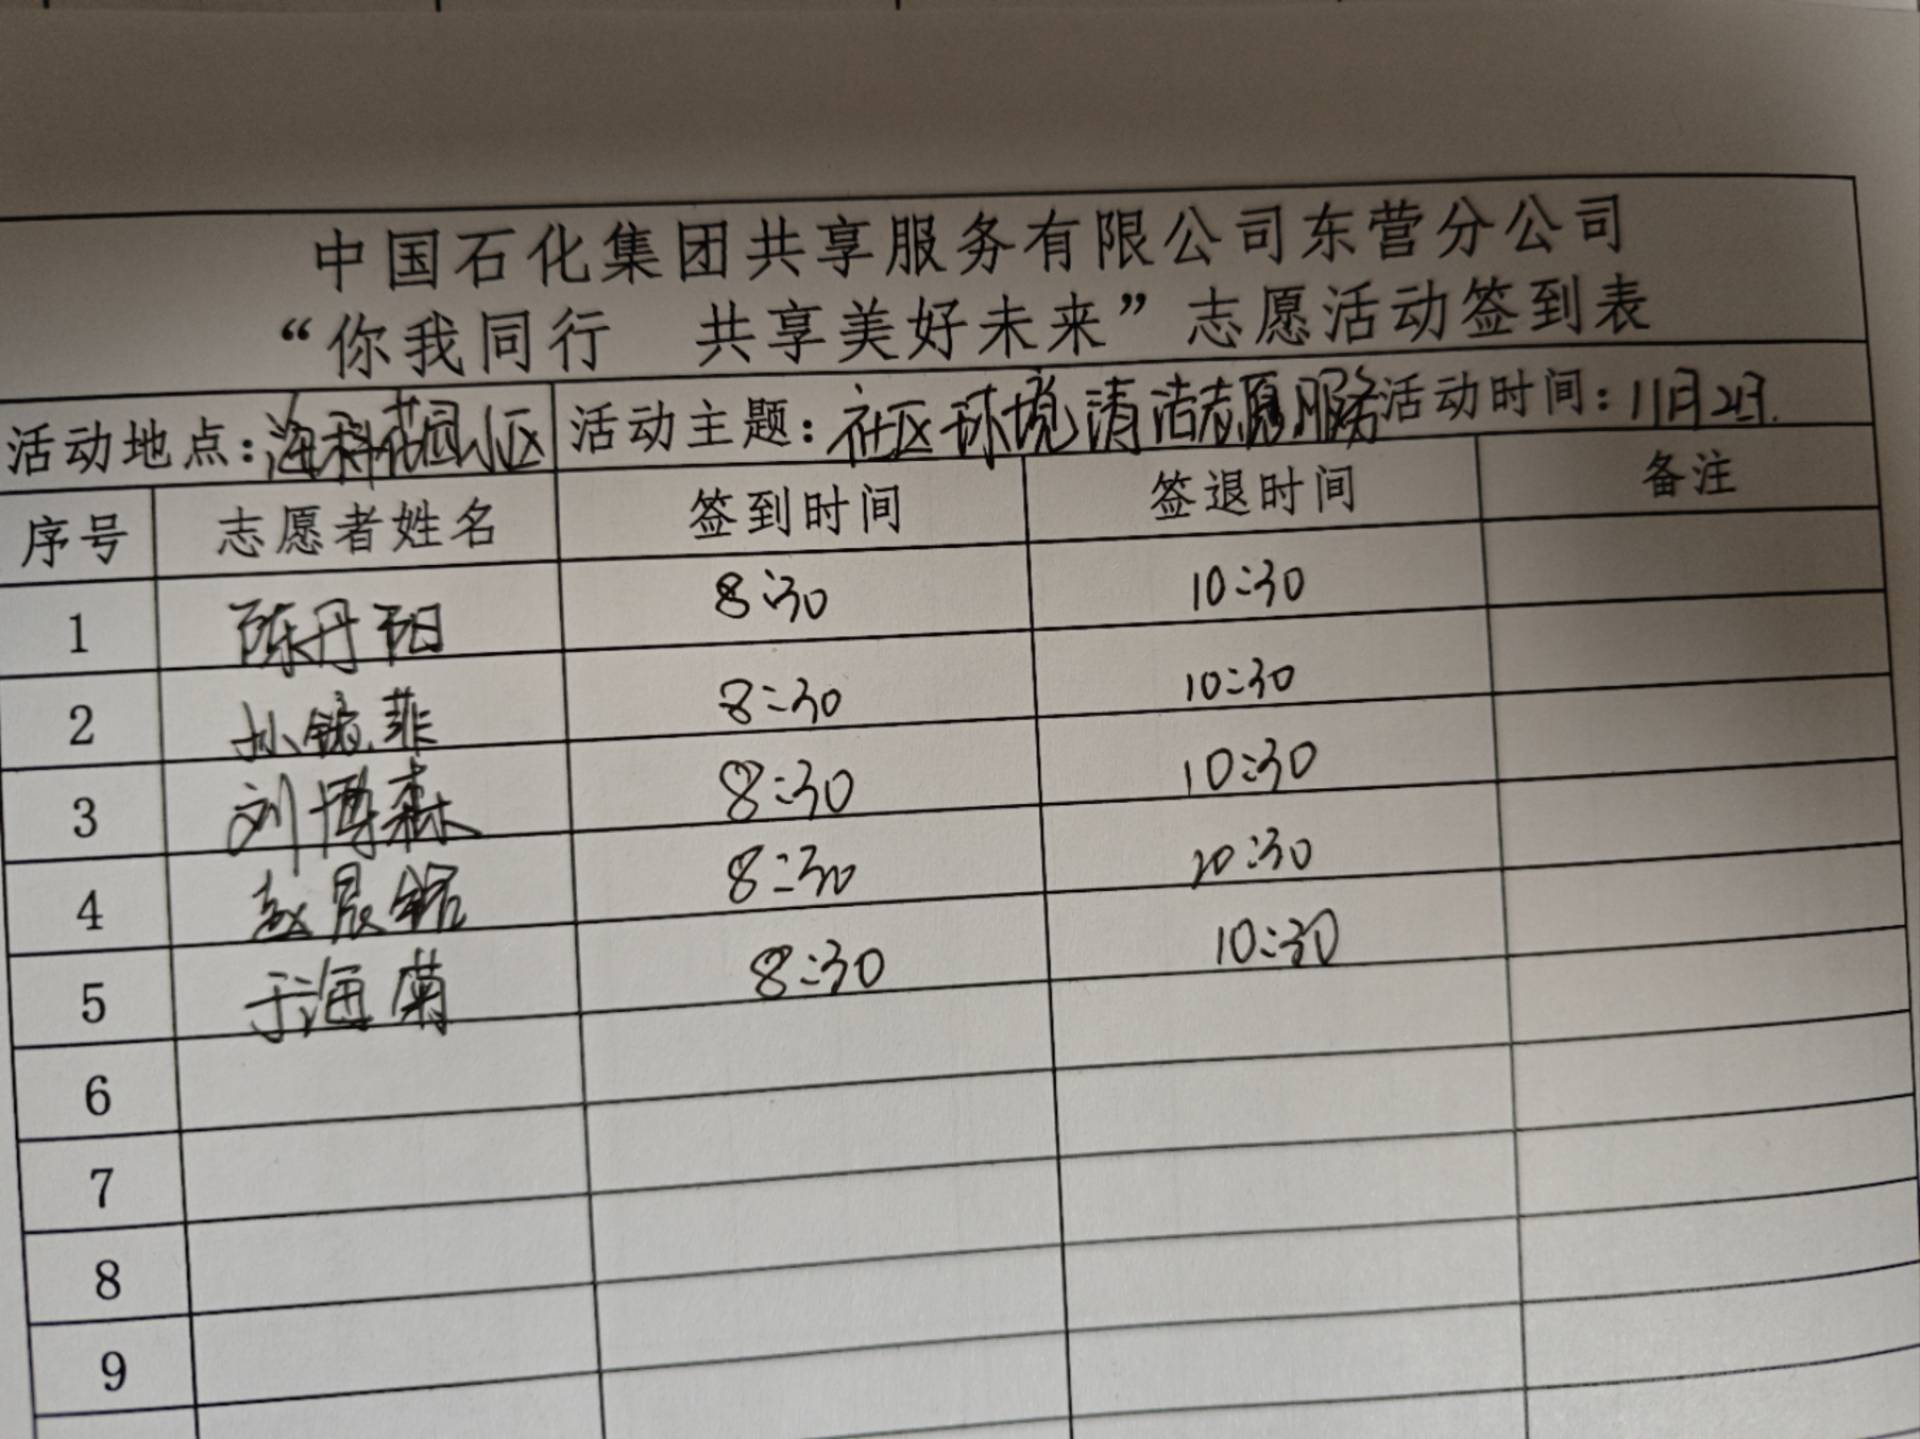 中国石化集团共享服务有限公司东营分公司
“你我同行 共享美好未来”志愿活动签到表
活动地点：海科花园小区 活动主题：社区环境清洁志愿服务 活动时间：11月2日.
序号 志愿者姓名 签到时间 签退时间 备注
1 陈丹阳 8:30 10:30
2 孙菲 8:30 10:30
3 刘博森 8:30 10:30
4 赵晨铭 8:30 10:30
5 于海菊 8:30 10:30
6
7
8
9